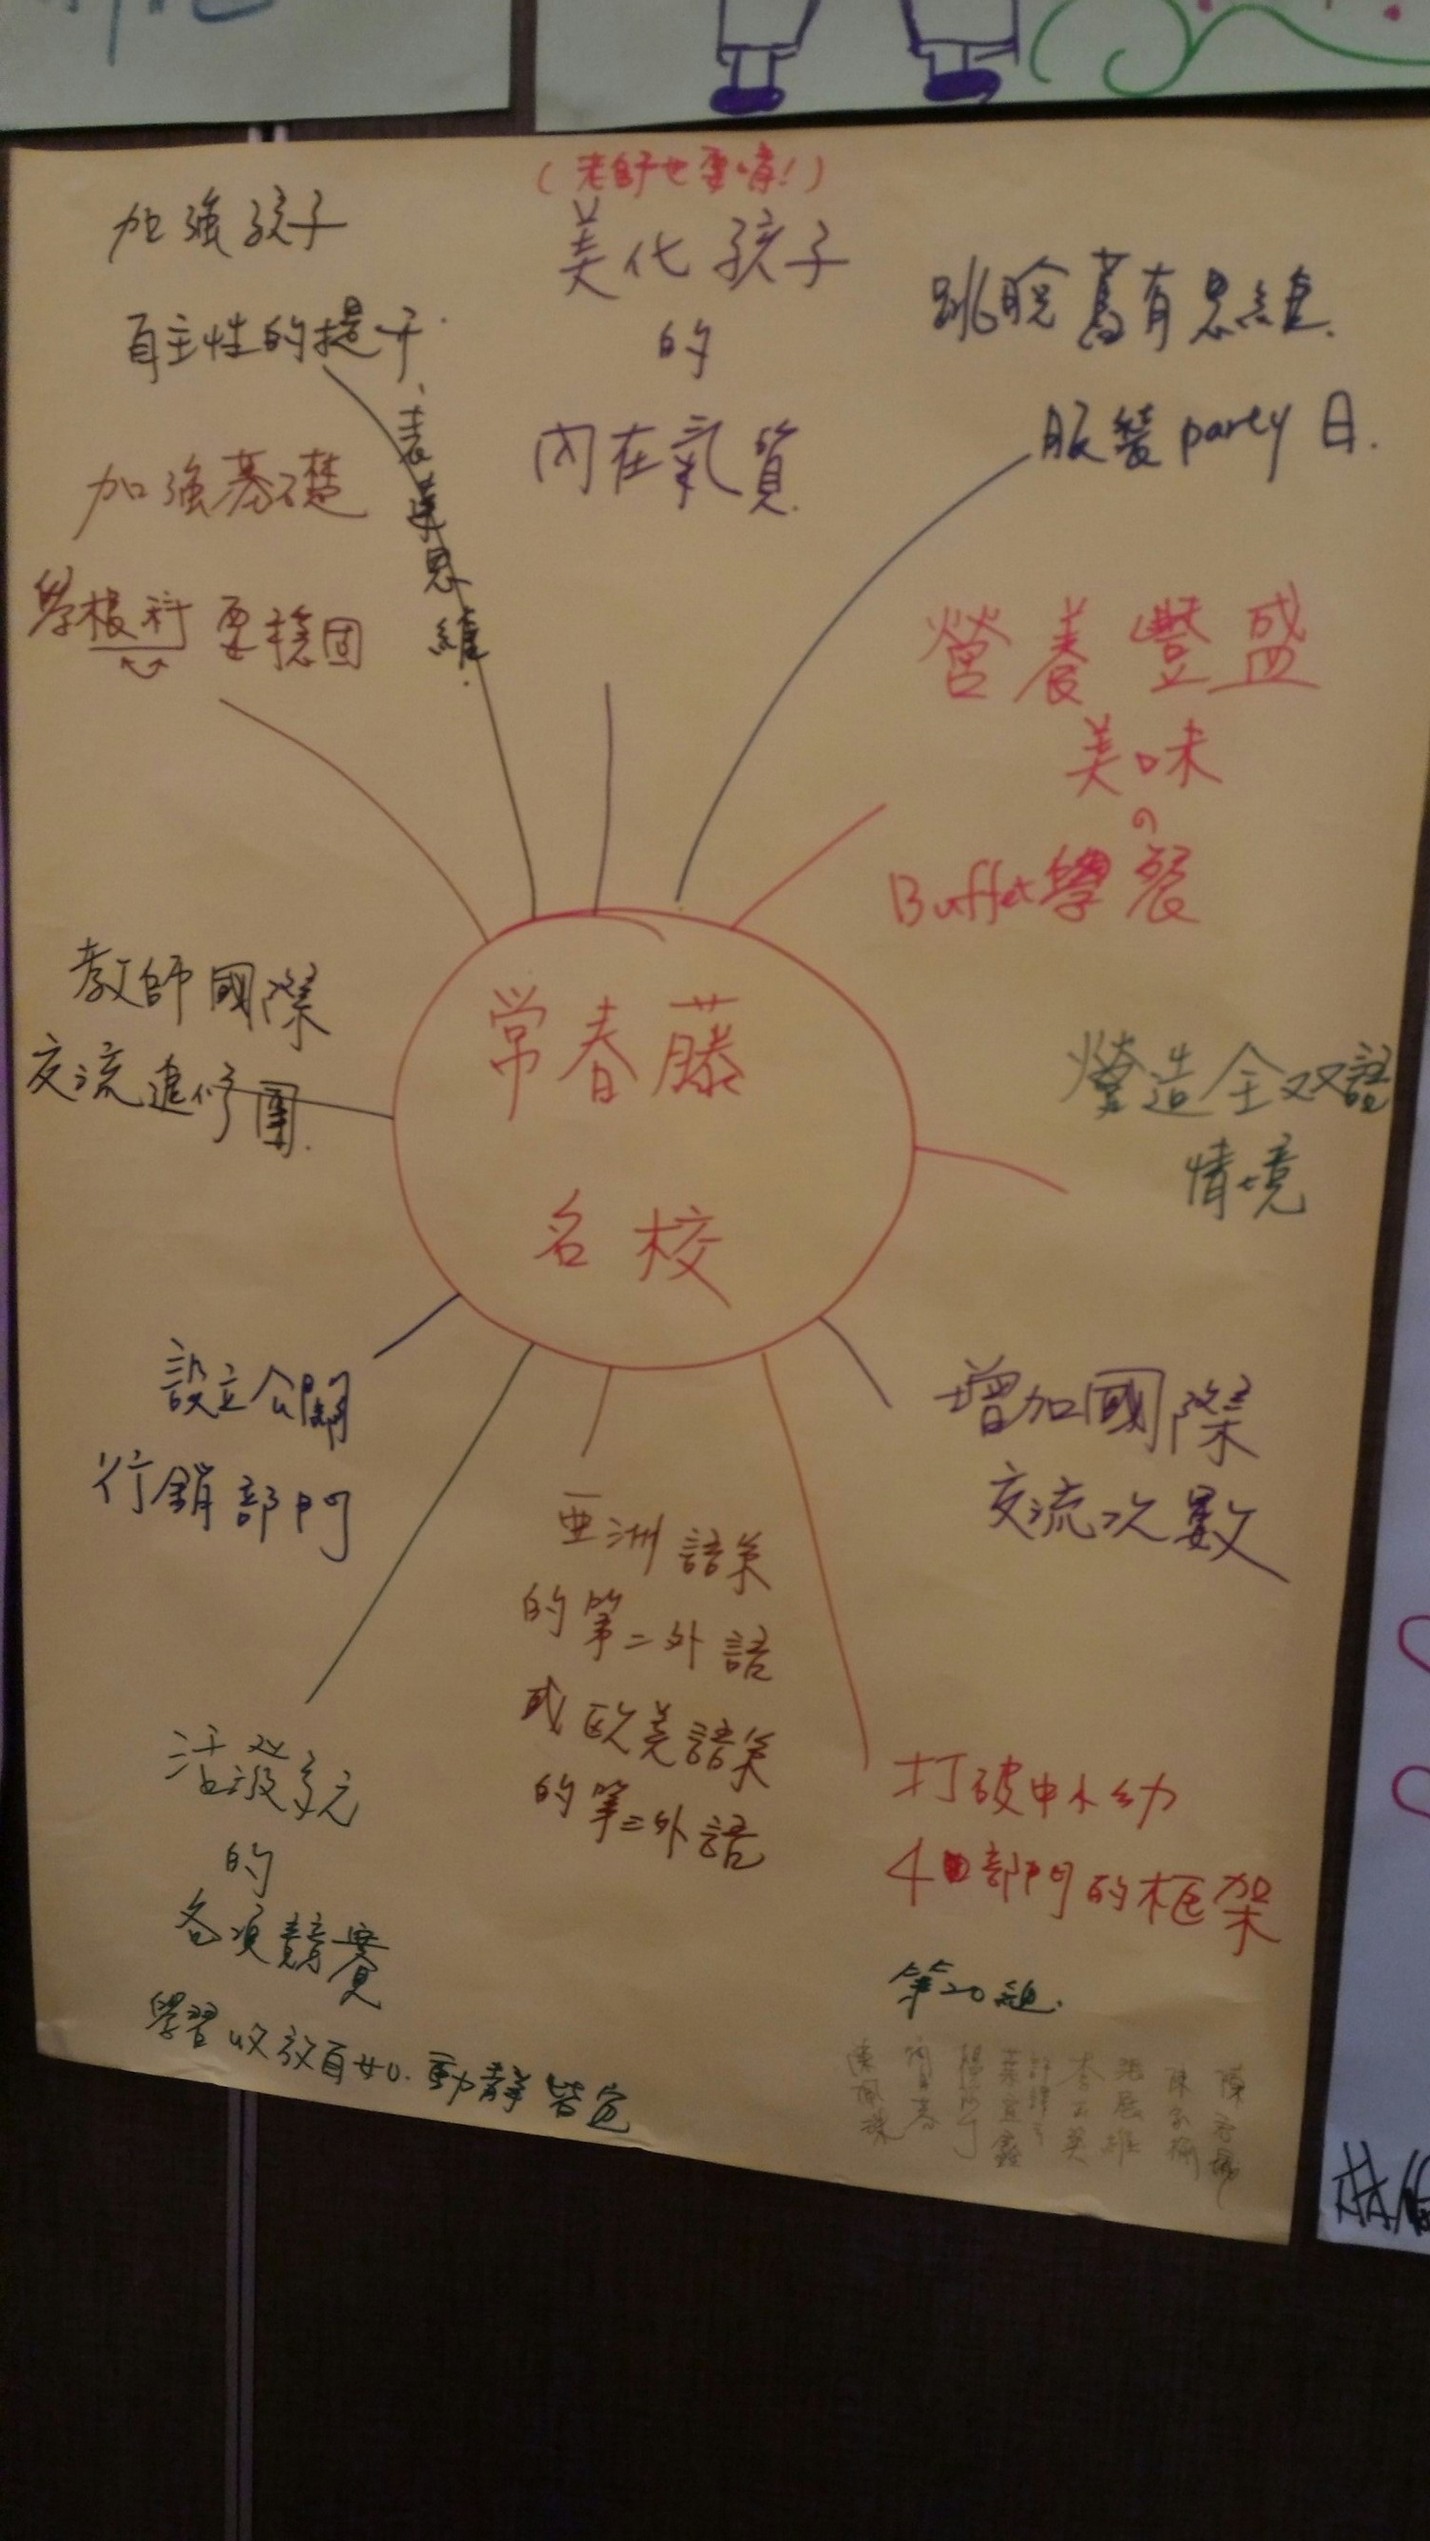 (老師也要唷!)
美化孩子
的
內在氣質
加強孩子
自主性的提升、
表達思維
跳脫舊有思維
服裝party日.
加強基礎
學根科要穩固
營養豐盛
美味
の
Buffet學餐
常春藤
名校
教師國際
交流進修團
營造全双語
情境
設立公關
行銷部門
增加國際
交流次數
亞洲語系
的第二外語
或歐美語系
的第三外語
打破中小幼
4部門的框架
活潑多元
的
各項競賽
學習收放自如.動靜皆宜
第20組